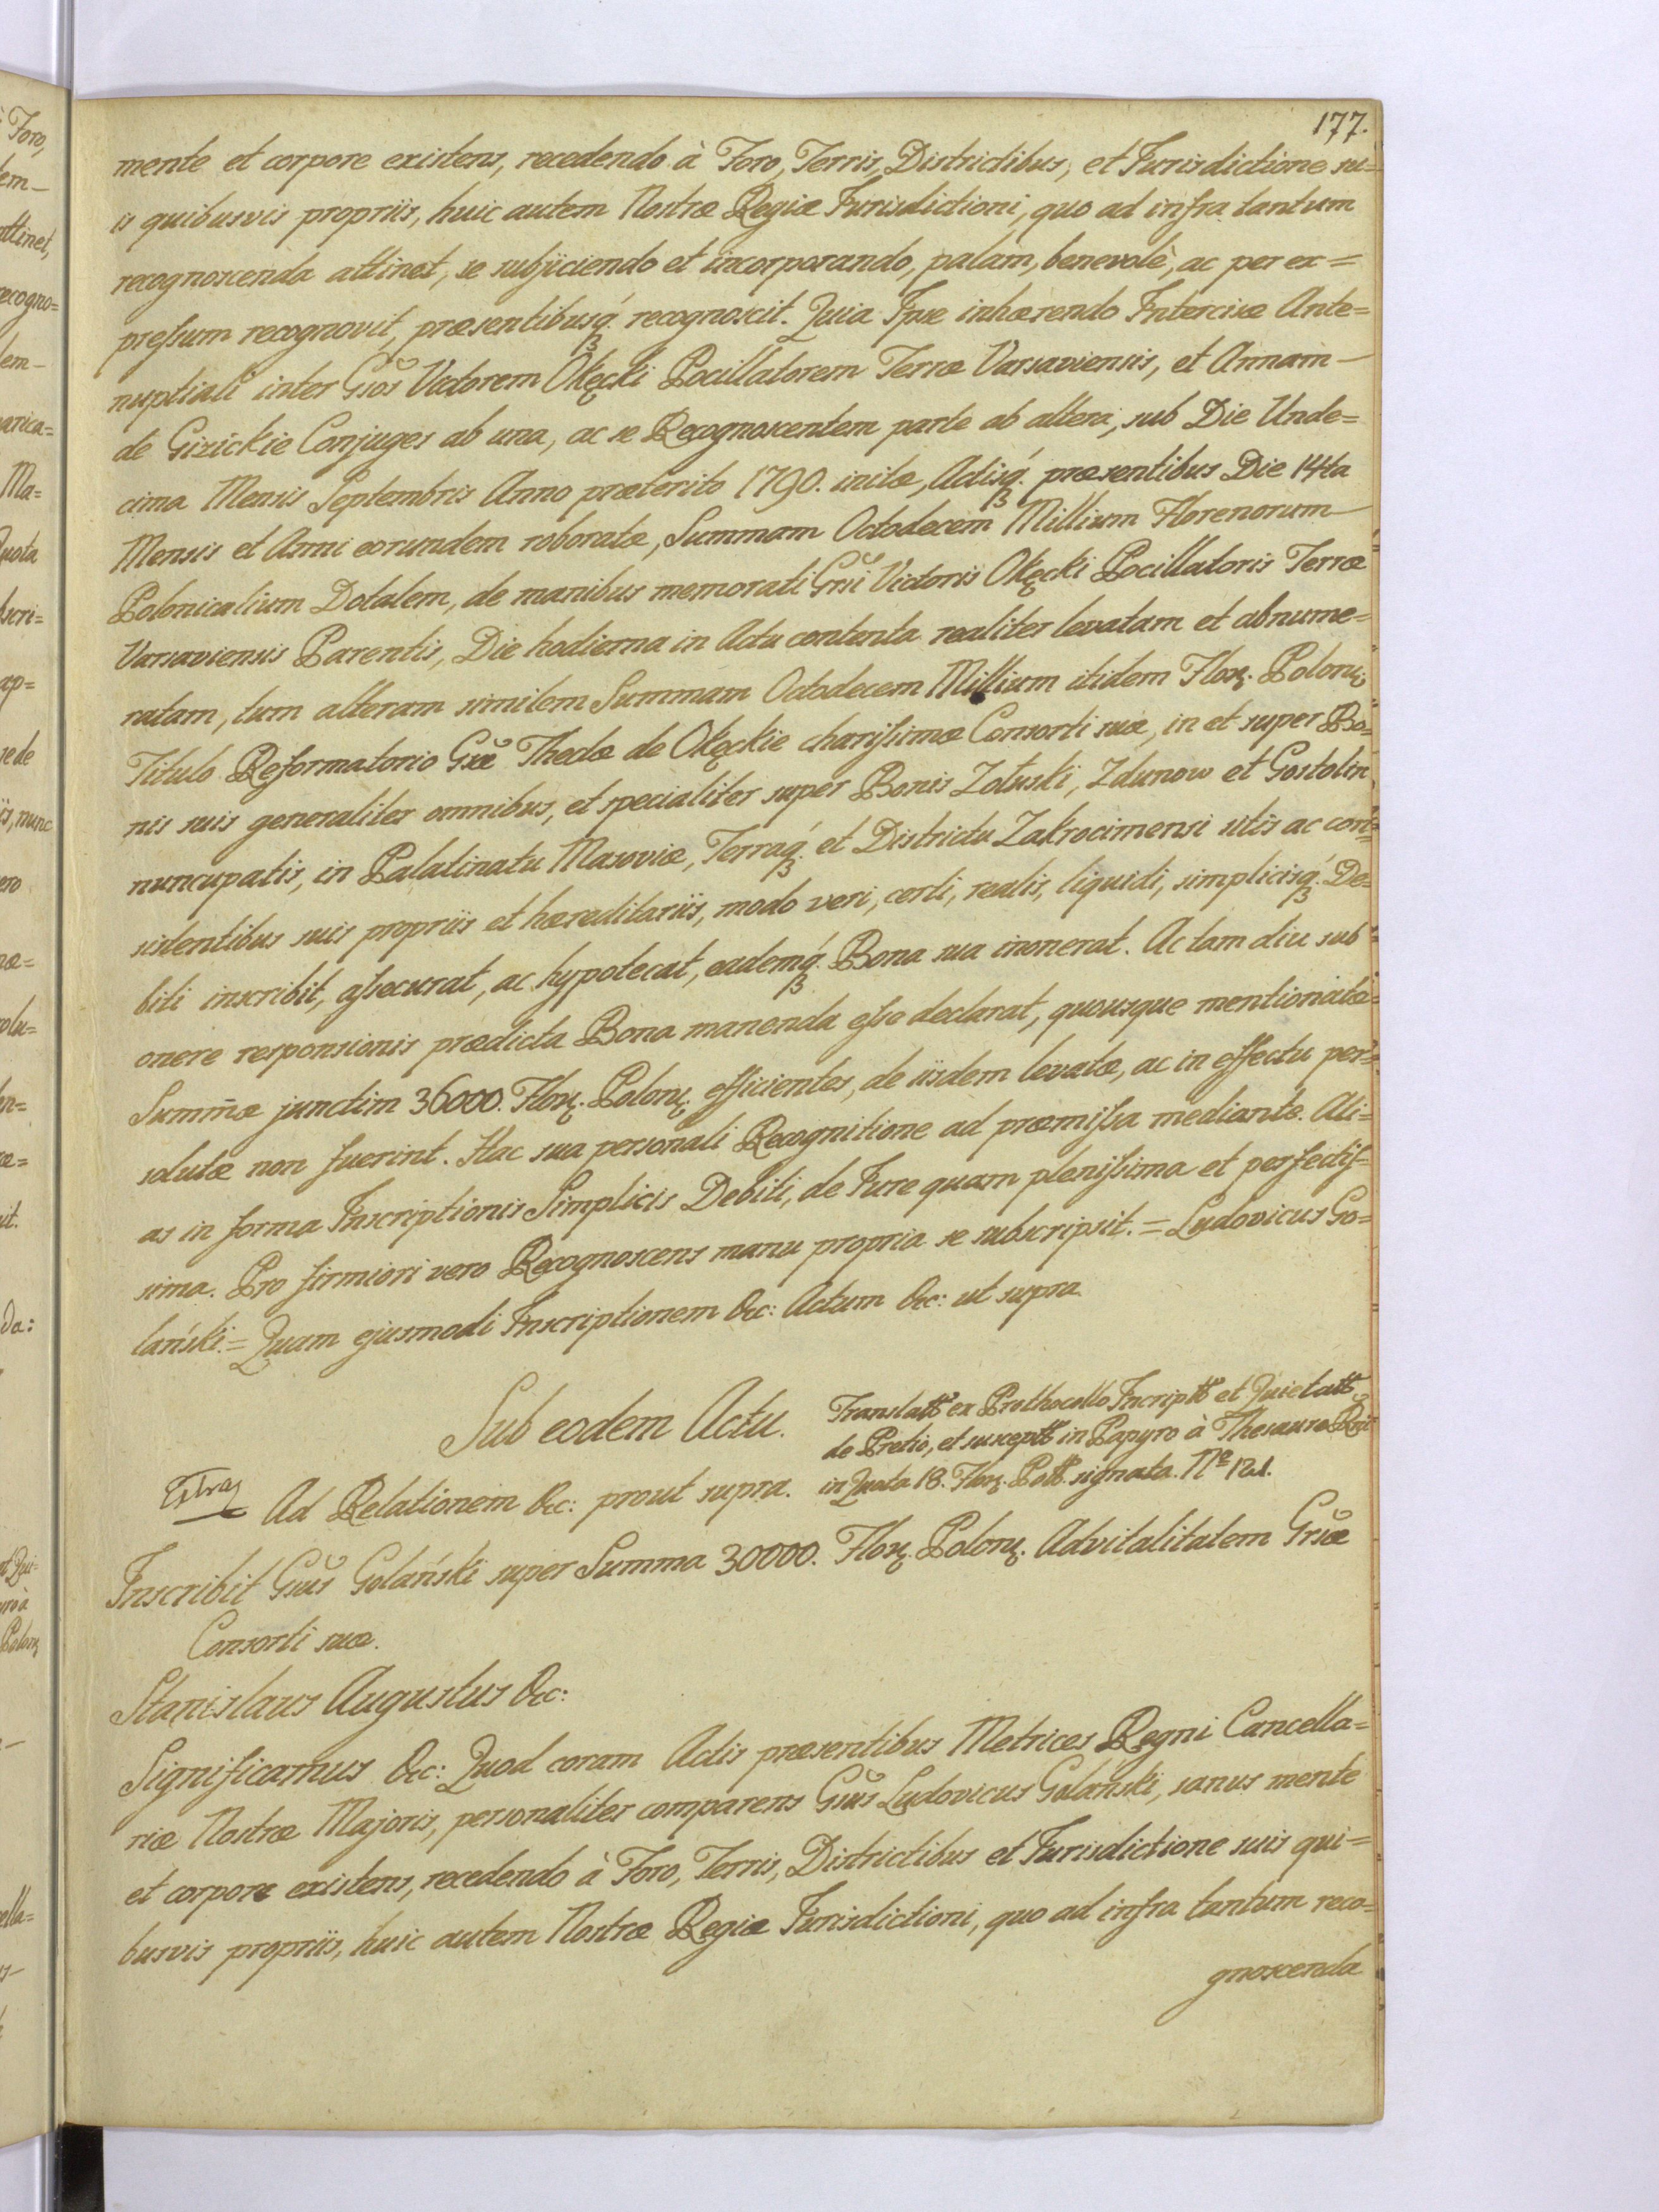 177.
mente et corpore existens, recedendo à Foro, Terris, Districtibus, et Jurisdictione su=
is quibusvis propriis, huic autem Nostræ Regiæ Jurisdictioni, quo ad infra tantum
recognoscenda attinet, se subjiciendo et incorporando, palam, benevolè, ac per ex=
pressum recognovit, præsentibusq́ꝫ recognoscit. Quia Ipse inhærendo Intercisæ Ante=
nuptiali inter Gsos Victorem Okęcki Pocillatorem Terræ Varsaviensis, et Annam
de Gizickie Conjuges ab una, ac se Recognoscentem parte ab altera, sub Die Unde=
cima Mensis Septembris Anno præterito 1790. initæ, Actisq́ꝫ præsentibus Die 14ta
Mensis et Anni eorundem roboratæ, Summam Octodecem Millium Florenorum
Polonicalium Dotalem, de manibus memorati Gsi Victoris Okęcki Pocillatoris Terræ
Varsaviensis Parentis, Die hodierna in Actu contenta realiter levatam et abnume=
ratam, tum alteram similem Summam Octodecem Millium itidem Flor. Polon.
Titulo Reformatorio Gsæ Theclæ de Okęckie charissimæ Consorti suæ, in et super Bo=
nis suis generaliter omnibus, et specialiter super Bonis Zołuski, Zdunow et Gostolin
nuncupatis, in Palatinatu Masoviæ, Terraq́ꝫ et Districtu Zakrocimensi sitis ac con=
sistentibus suis propriis et hæreditariis, modo veri, certi, realis, liquidi, simplicisq́ꝫ De=
biti inscribit, assecurat, ac hypotecat, eademq́ꝫ Bona sua inonerat. Ac tam diu sub
onere responsionis prædicta Bona manenda esse declarat, quousque mentionatæ
Summæ junctim 36000. Flor. Polon. efficientes, de iisdem levatæ, ac in effectu per=
solutæ non fuerint. Hac sua personali Recognitione ad præmissa mediante. Ali=
as in forma Inscriptionis Simplicis Debiti, de Jure quam plenissima et perfectis=
sima. Pro firmiori vero Recognoscens manu propria se subscripsit. = Ludovicus Go=
lański. = Quam ejusmodi Inscriptionem &c: Actum &c: ut supra
Sub eodem Actu.
Translatt ex Prothocollo Incriptt et Quietatt
de Pretio, et susceptt in Papyro à Thesauro
in Quota 18. Flor. Poll. signata. No
Extrad
Ad Relationem &c: prout supra.
Inscribit Gsus Golański super Summa 30000. Flor. Polon. Advitalitatem Gsæ
Consorti suæ.
Stanislaus Augustus &c:
Significamus &c: Quod coram Actis præsentibus Metrices Regni Cancella=
riæ Nostræ Majoris, personaliter comparens Gsus Ludovicus Golański, sanus mente
et corpore existens, recedendo à Foro, Terris, Districtibus et Jurisdictione suis qui=
busvis propriis, huic autem Nostræ Regiæ Jurisdictioni, quo ad infra tantum reco=
gnoscenda